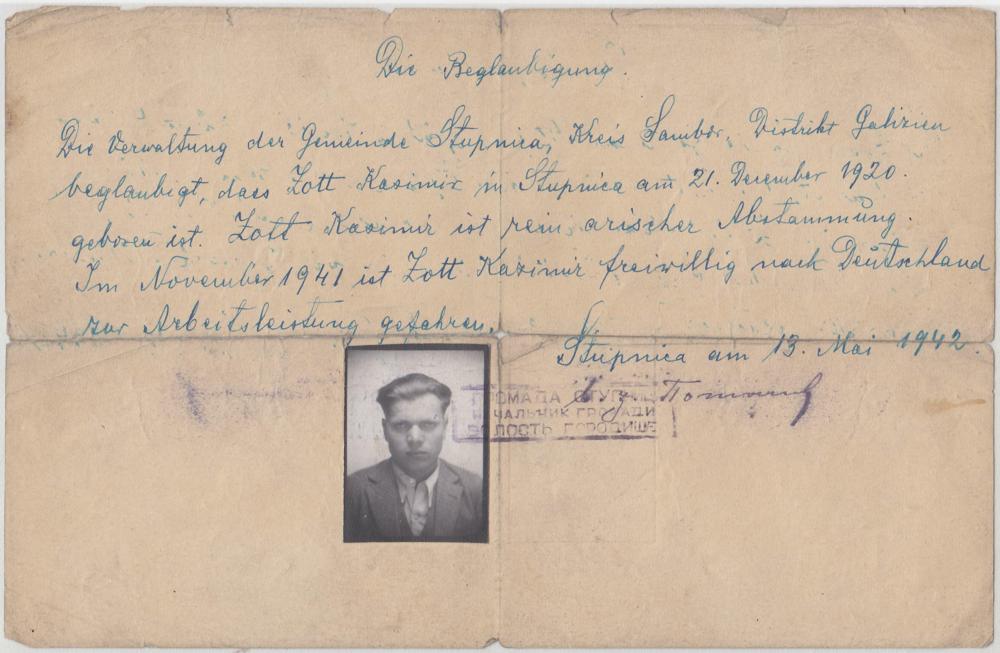 Die Beglaubigung.
Die Verwaltung der Gemeinde Stupnica, Kreis Sambor, Distrikt Galizien
beglaubigt, dass Zott Kasimir in Stupnica am 21. Dezember 1920.
geboren ist. Zott Kasimir ist rein arischer Abstammung.
Im November 1941 ist Zott Kazimir freiwillig nach Deutschland
zur Arbeitsleistung gefahren.
Stupnica am 13. Mai 1942.
ГРОМАДА
НАЧАЛЬНИК ГРОМАДИ
ВОЛОСТЬ ГОРОДИЩЕ